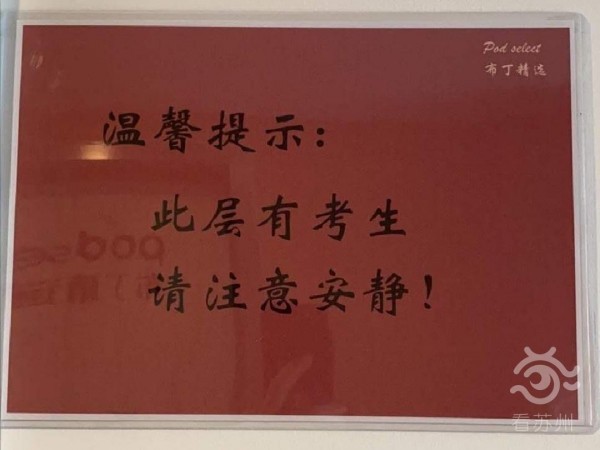 Pod select
布丁精选
温馨提示：
此层有考生
请注意安静！
看苏州